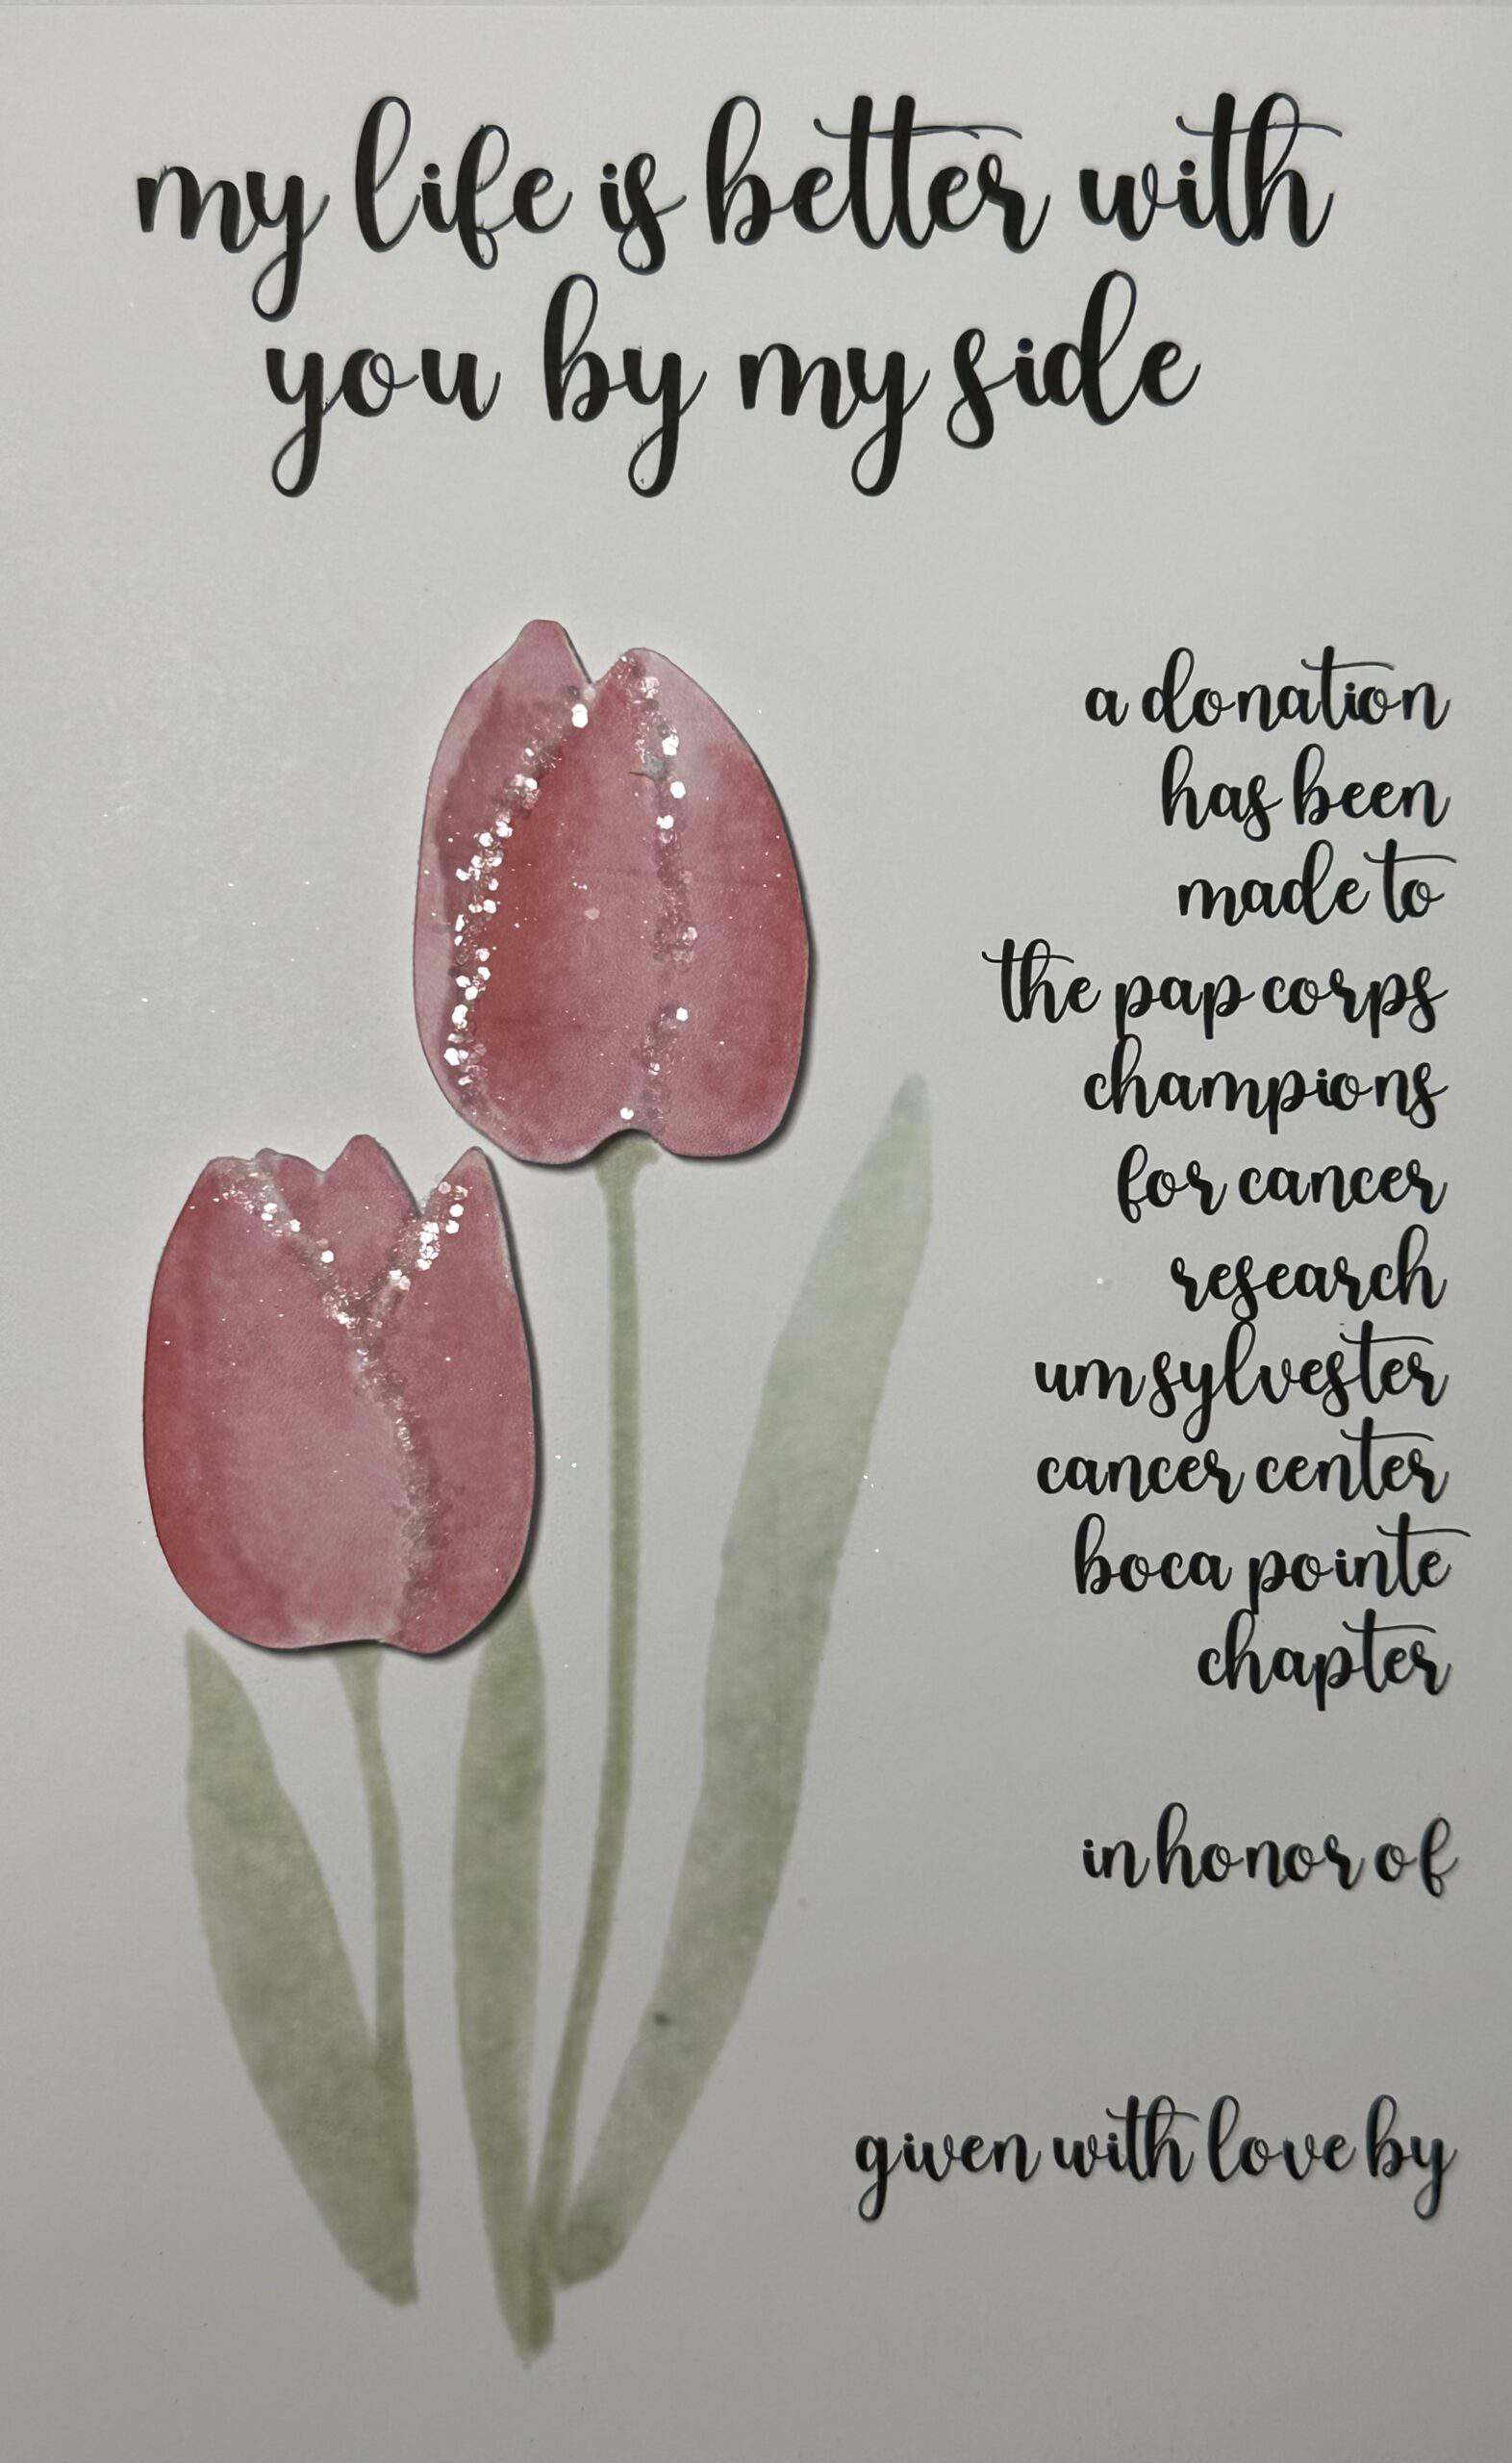 my life is better with
you by my side
a donation
has been
made to
the pap corps
champions
for cancer
research
um sylvester
cancer center
boca pointe
chapter
in honor of
given with love by